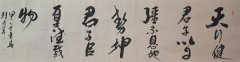 天行健
君子以自
強不息地
勢坤
君子以
厚德載
物